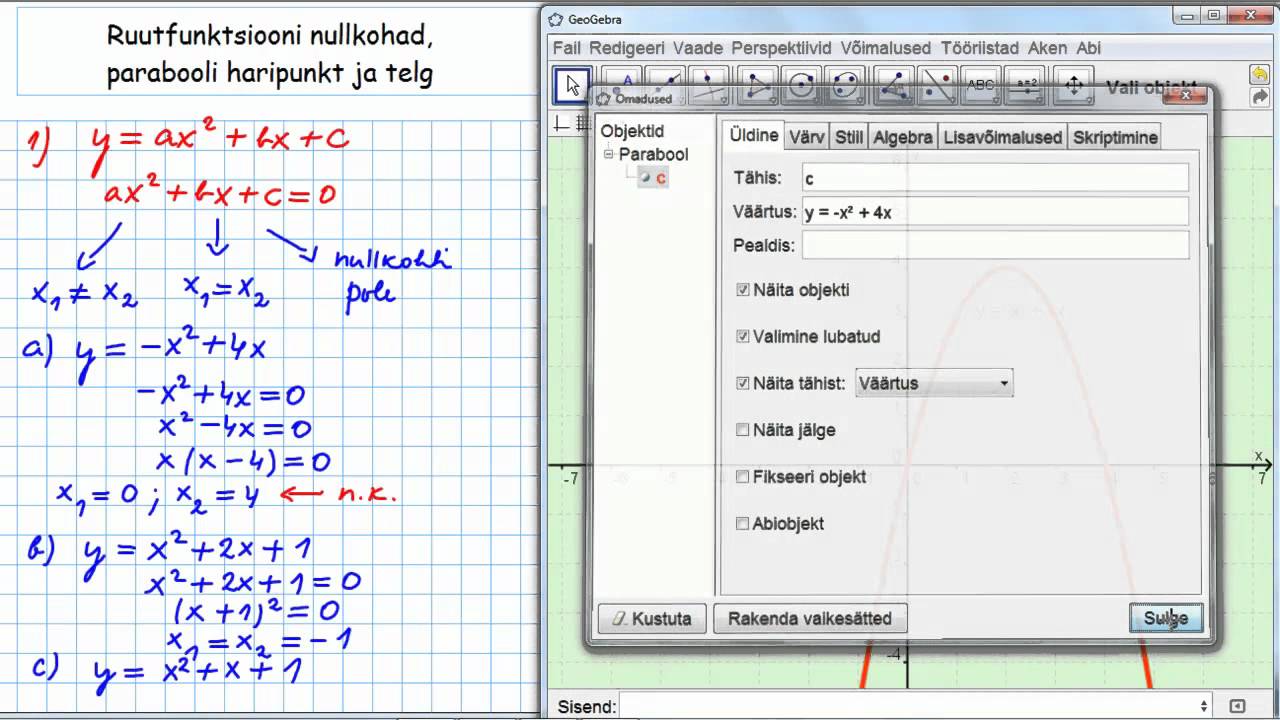 Ruutfunktsiooni nullkohad,
parabooli haripunkt ja telg
1) y = ax² + bx + c
ax² + bx + c = 0
nullkohti
x₁ ≠ x₂ x₁ = x₂ pole
a) y = -x² + 4x
-x² + 4x = 0
x² - 4x = 0
x(x - 4) = 0
x₁ = 0 ; x₂ = 4 ← n.k.
b) y = x² + 2x + 1
x² + 2x + 1 = 0
(x + 1)² = 0
x₁ = x₂ = -1
c) y = x² + x + 1
GeoGebra
Fail Redigeeri Vaade Perspektiivid Võimalused Tööriistad Aken Abi
ABC a=2 Vali objekt
Omadused
Objektid
Parabool
c
Üldine Värv Stiil Algebra Lisavõimalused Skriptimine
Tähis: c
Väärtus: y = -x² + 4x
Pealdis:
Näita objekti
Valimine lubatud
Näita tähist: Väärtus
Näita jälge
Fikseeri objekt
Abiobjekt
Kustuta Rakenda vaikesätted Sulge
x
-7 7
-4
Sisend: